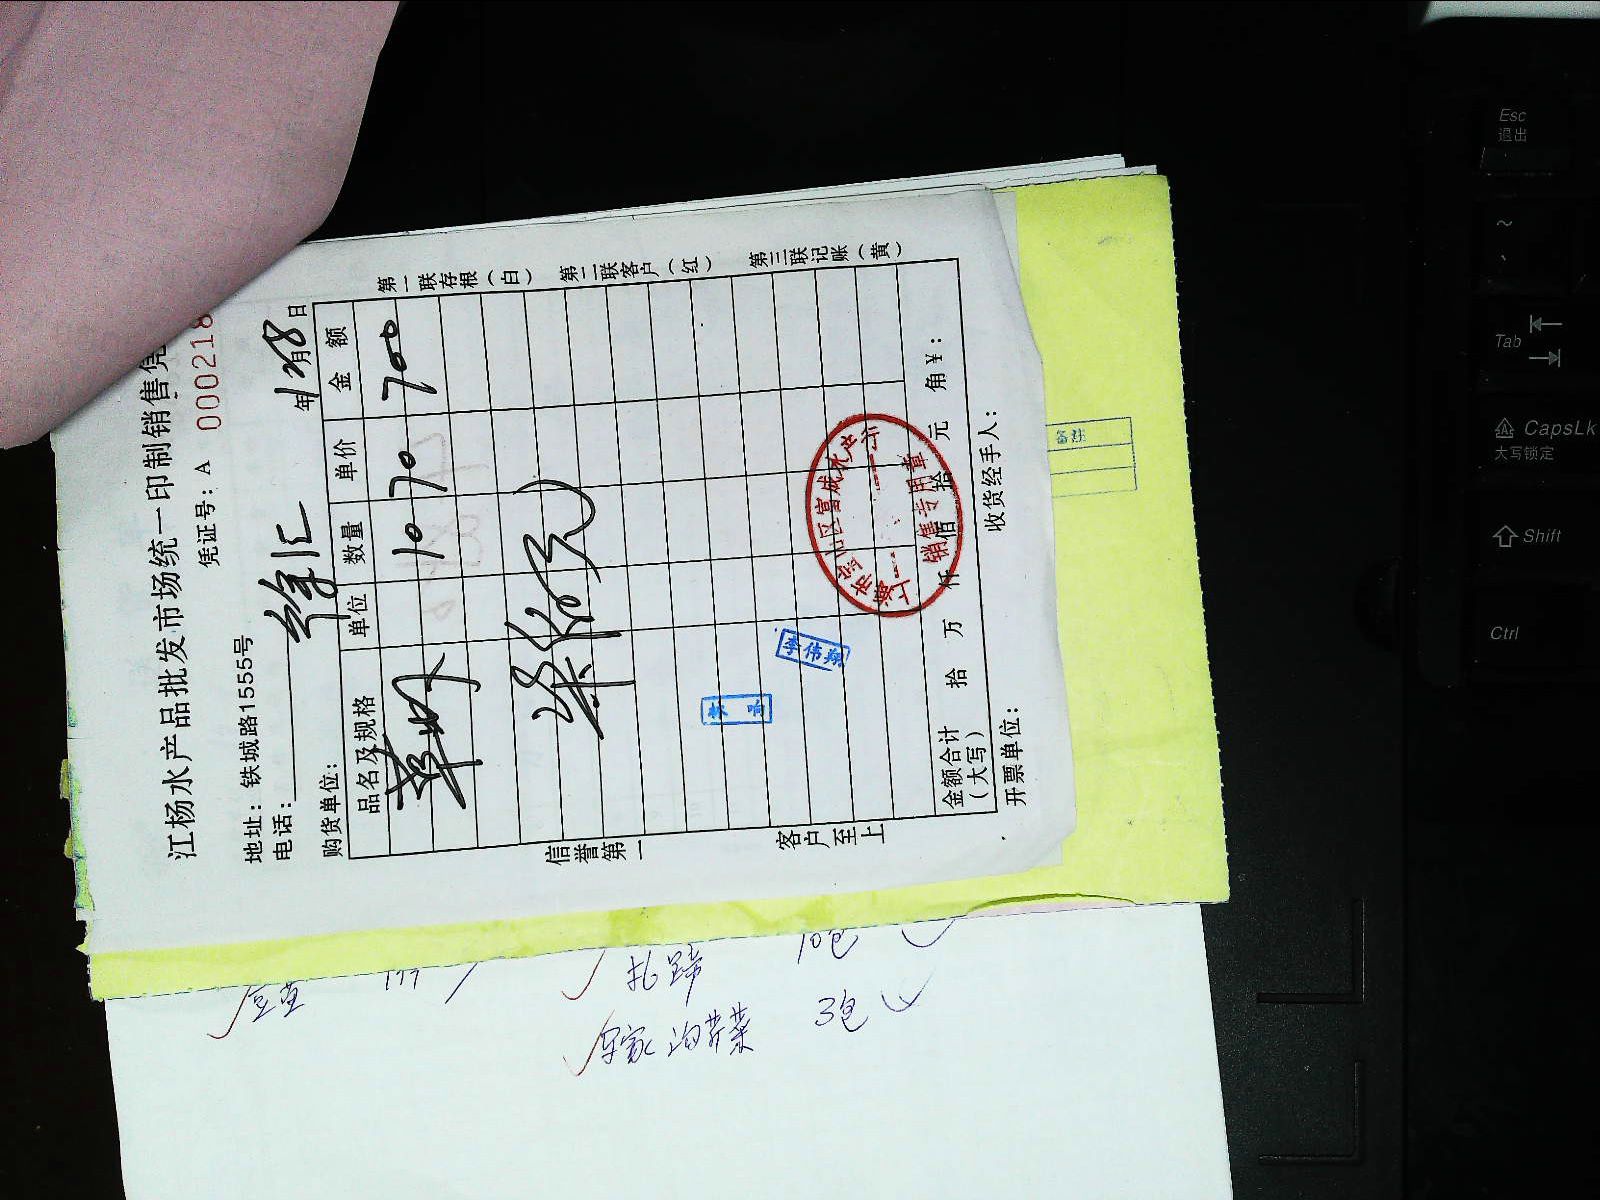 江杨水产品批发市场统一印制销售凭
凭证号：A 000218
地址：铁城路1555号
电话：
购货单位： 徐汇
年1月28日
品名及规格 单位 数量 单价 金额
10 70 700
第一联存根（白） 第二联客户（红） 第三联记账（黄）
信誉第一 客户至上
李伟翔
销售专用章
金额合计（大写） 拾 万 仟 佰 拾 元 角 ¥：
开票单位： 收货经手人：
备注
扎蹄 10包
3包
Esc
退出
~
Tab
CapsLk
大写锁定
Shift
Ctrl